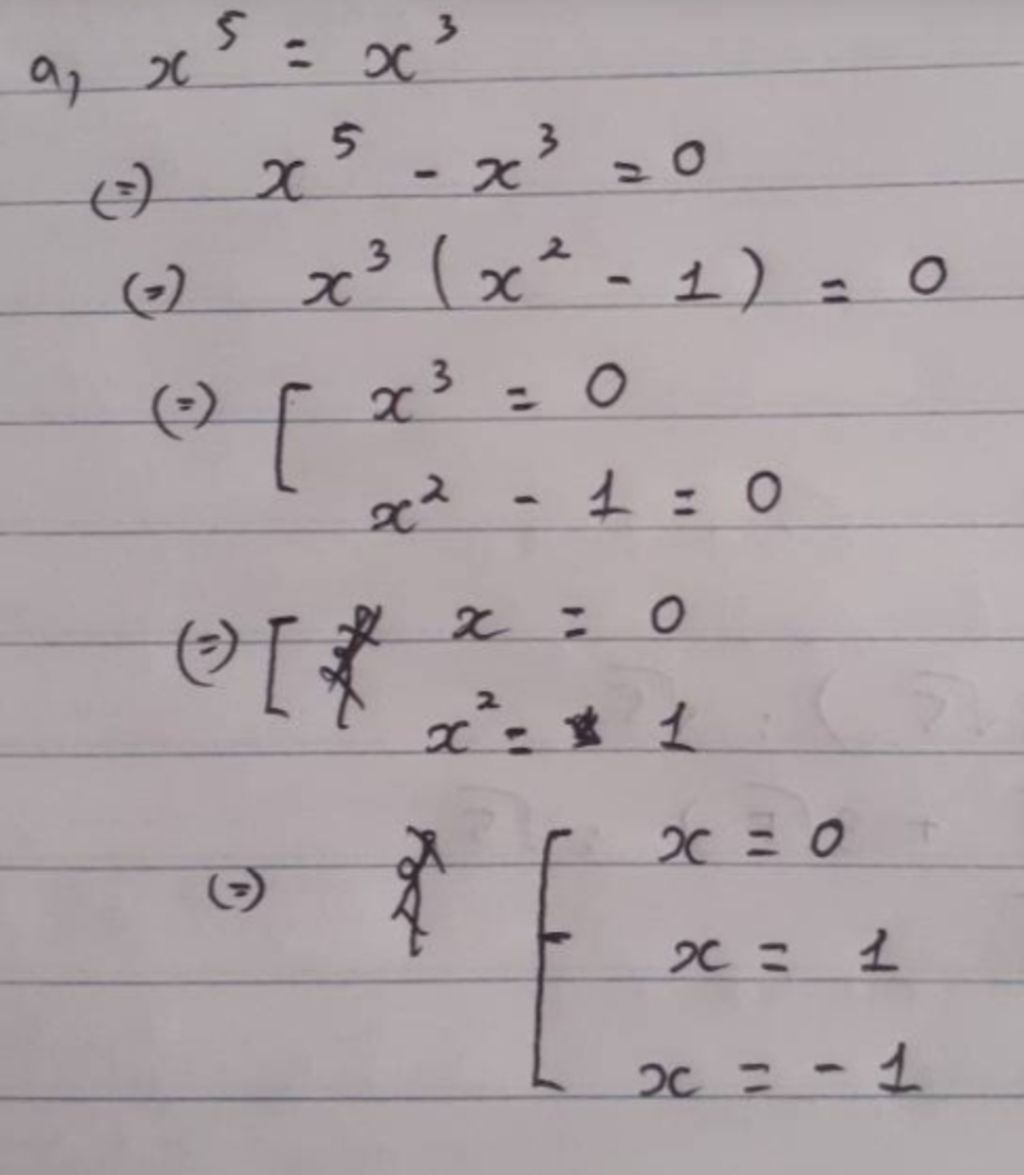 a, x⁵ = x³
(=) x⁵ - x³ = 0
(=) x³ (x² - 1) = 0
(=) [ x³ = 0
x² - 1 = 0
(=) [ x = 0
x² = 1
(=) [ x = 0
x = 1
x = - 1